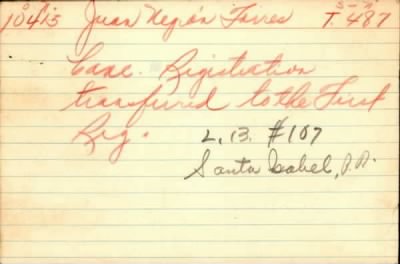 O N S-N
10413 Juan Negrón Torres T. 487
Canc. Registration
transferred to the First
Reg.
L.B. #107
Santa Isabel, P.R.